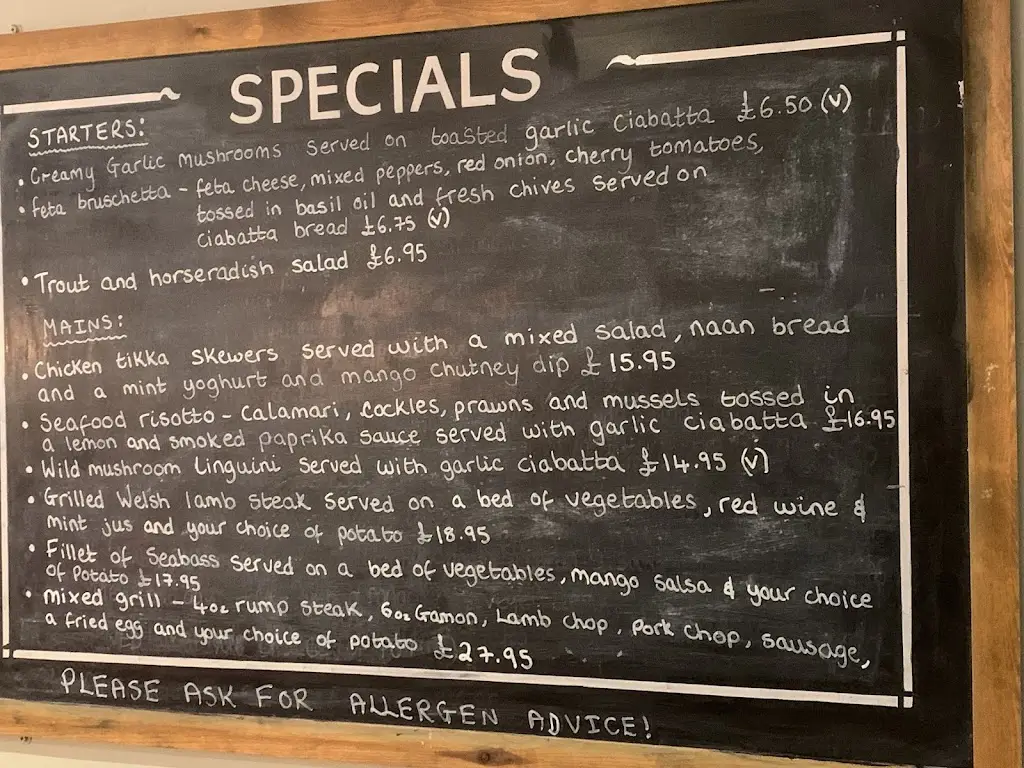 SPECIALS
STARTERS:
• Creamy Garlic mushrooms served on toasted garlic ciabatta £6.50 (v)
• feta bruschetta - feta cheese, mixed peppers, red onion, cherry tomatoes,
tossed in basil oil and fresh chives served on
ciabatta bread £6.75 (v)
• Trout and horseradish salad £6.95
MAINS:
• Chicken tikka skewers served with a mixed salad, naan bread
and a mint yoghurt and mango chutney dip £15.95
• Seafood risotto - calamari, cockles, prawns and mussels tossed in
a lemon and smoked paprika sauce served with garlic ciabatta £16.95
• Wild mushroom linguini served with garlic ciabatta £14.95 (v)
• Grilled Welsh lamb steak served on a bed of vegetables, red wine &
mint jus and your choice of potato £18.95
• Fillet of Seabass served on a bed of vegetables, mango salsa & your choice
of Potato £17.95
• mixed grill - 4oz rump steak, 6oz Gamon, Lamb chop, Pork chop, sausage,
a fried egg and your choice of potato £27.95
PLEASE ASK FOR ALLERGEN ADVICE!